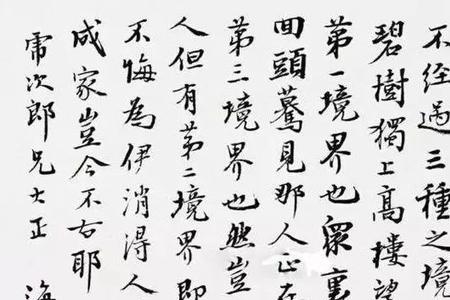 不经過三種之境
碧樹獨上高樓望
第一境界也眾裏
回頭驀見那人正在
第三境界也然豈
人但有第二境界即
不悔為伊消得人
成家豈今不古耶
次郎兄大正
海